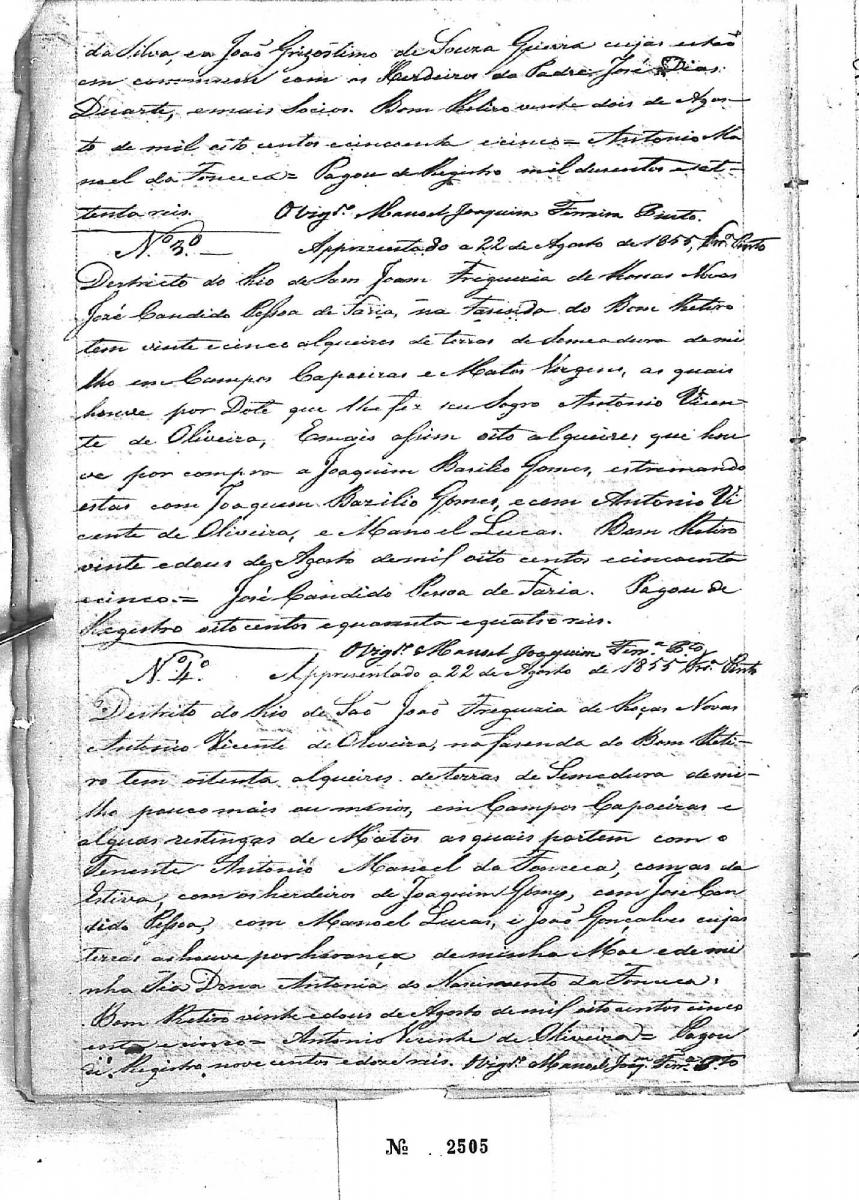 da Silva, e a João Grizostimo de Souza Guerra cujas estão
em commum com os Herdeiros do Padre José Dias
Duarte, emais Socios. Bom Retiro vente dois de Agos-
to de mil oito centos ecincoenta ecinco = Antonio Ma
noel da Fonceca = Pagou de Registro mil dusentos eset-
tenta reis. O Vigr.º Manoel Joaquim Ferreira Pinto.
N.º 3.º Apprezentado a 22 de Agosto de 1855, Frr.ª Pinto
Destricto do Rio de Sam Joam Freguezia de Rossas Novas
José Candido Pessoa de Faria, na Fasenda do Bom Retiro
tem vinte ecinco alqueires de terras de Semeadura de mi
lho em Campos Capoeiras e Matos Virgens, as quais
houve por Dote que lhe fez seu Sogro Antonio Vicen-
te de Oliveira, Emais assim oito alqueires que hou
ve por compra a Joaquim Basilio Gomes, estremando
estas com Joaquem Bazilio Gomes, ecom Antonio Vi
cente de Oliveira, e Manoel Lucas. Bom Retiro
vinte edous de Agosto demil oito centos ecincoenta
ecinco = José Candido Pessoa de Faria. Pagou de
Registro oito centos equarenta equatro reis.
O Vigr.º Manoel Joaquim Ferr.ª P.to
N.º 4.º Appresentado a 22 de Agosto de 1855 Frr.ª Pinto
Destrito do Rio de Saõ João Freguezia de Roças Novas
Antonio Vicente de Oliveira, na fasenda do Bom Reti-
ro tem oitenta alqueires de terras de Semedura de mi-
lho pouco mais ou menos, em Campos Capoeiras e
alguas restingas de Matos as quais partem com o
Tenente Antonio Manoel da Fonceca, com as da
Estiva, com os herdeiros de Joaquim Gomes, com José Can
dido Pessoa, com Manoel Lucas, e João Gonçalves cujas
terras as houve por herança de minha Mae e de mi
nha Tia Dona Antonia do Nascimento da Fonceca.
Bom Retiro vinte edous de Agosto de mil oito centos cinco
enta e cinco = Antonio Vicente de Oliveira = Pagou
de Registro nove centos e doze reis. O Vigr.º Manoel Joaq.m Ferr.ª P.to
№ 2505